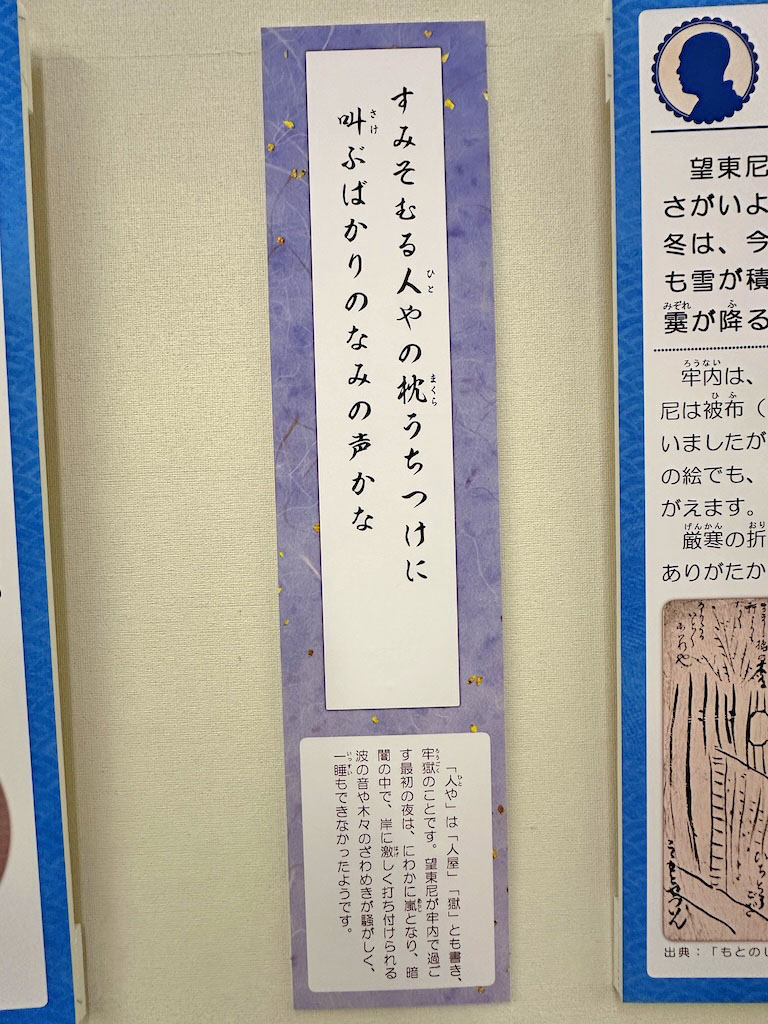 すみそむる人やの枕うちつけに
叫ぶばかりのなみの声かな
「人や」は「人屋」「獄」とも書き、
牢獄のことです。望東尼が牢内で過ご
す最初の夜は、にわかに嵐となり、暗
闇の中で、岸に激しく打ち付けられる
波の音や木々のざわめきが騒がしく、
一睡もできなかったようです。
望東尼
さがいよ
冬は、今
も雪が積
霙が降る
牢内は、
尼は被布（
いましたが
の絵でも、
がえます。
厳寒の折
ありがたか
出典：「もとのし